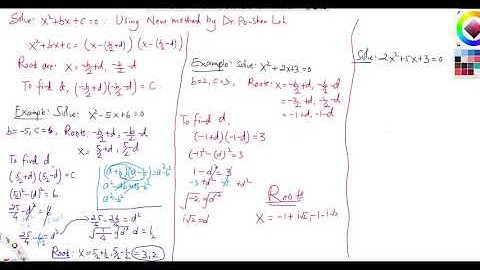 Solve: x²+bx+c=0: Using New method by Dr. Po-shen Loh
x²+bx+c = (x-(-b/2+d)) (x-(-b/2-d))
Root are: x = -b/2+d, -b/2-d
To find d, (-b/2+d)(-b/2-d) = c
Example: Solve: x²-5x+6=0
b=-5, c=6, Roots: -b/2+d, -b/2-d
x = 5/2+d, 5/2-d
To find d,
(5/2+d)(5/2-d)=c
(5/2)²-(d)²=6
(a+b)(a-b)=a²-b²
25/4-d²=6
25/4-6=d²
25/4-24/4=d²
√1/4=√d² d=1/2
Root: x=5/2+1/2, 5/2-1/2=3,2
Example: Solve: x²+2x+3=0
b=2, c=3, Roots: x=-b/2+d, -b/2-d
=-2/2+d, -2/2-d
=-1+d, -1-d
To find d,
(-1+d)(-1-d)=3
(-1)²-(d)²=3
1-d²=3
-3+d² -3+d²
√-2=√d²
i√2=d
Roots
x=-1+i√2, -1-i√2
Solve: 2x²+5x+3=0